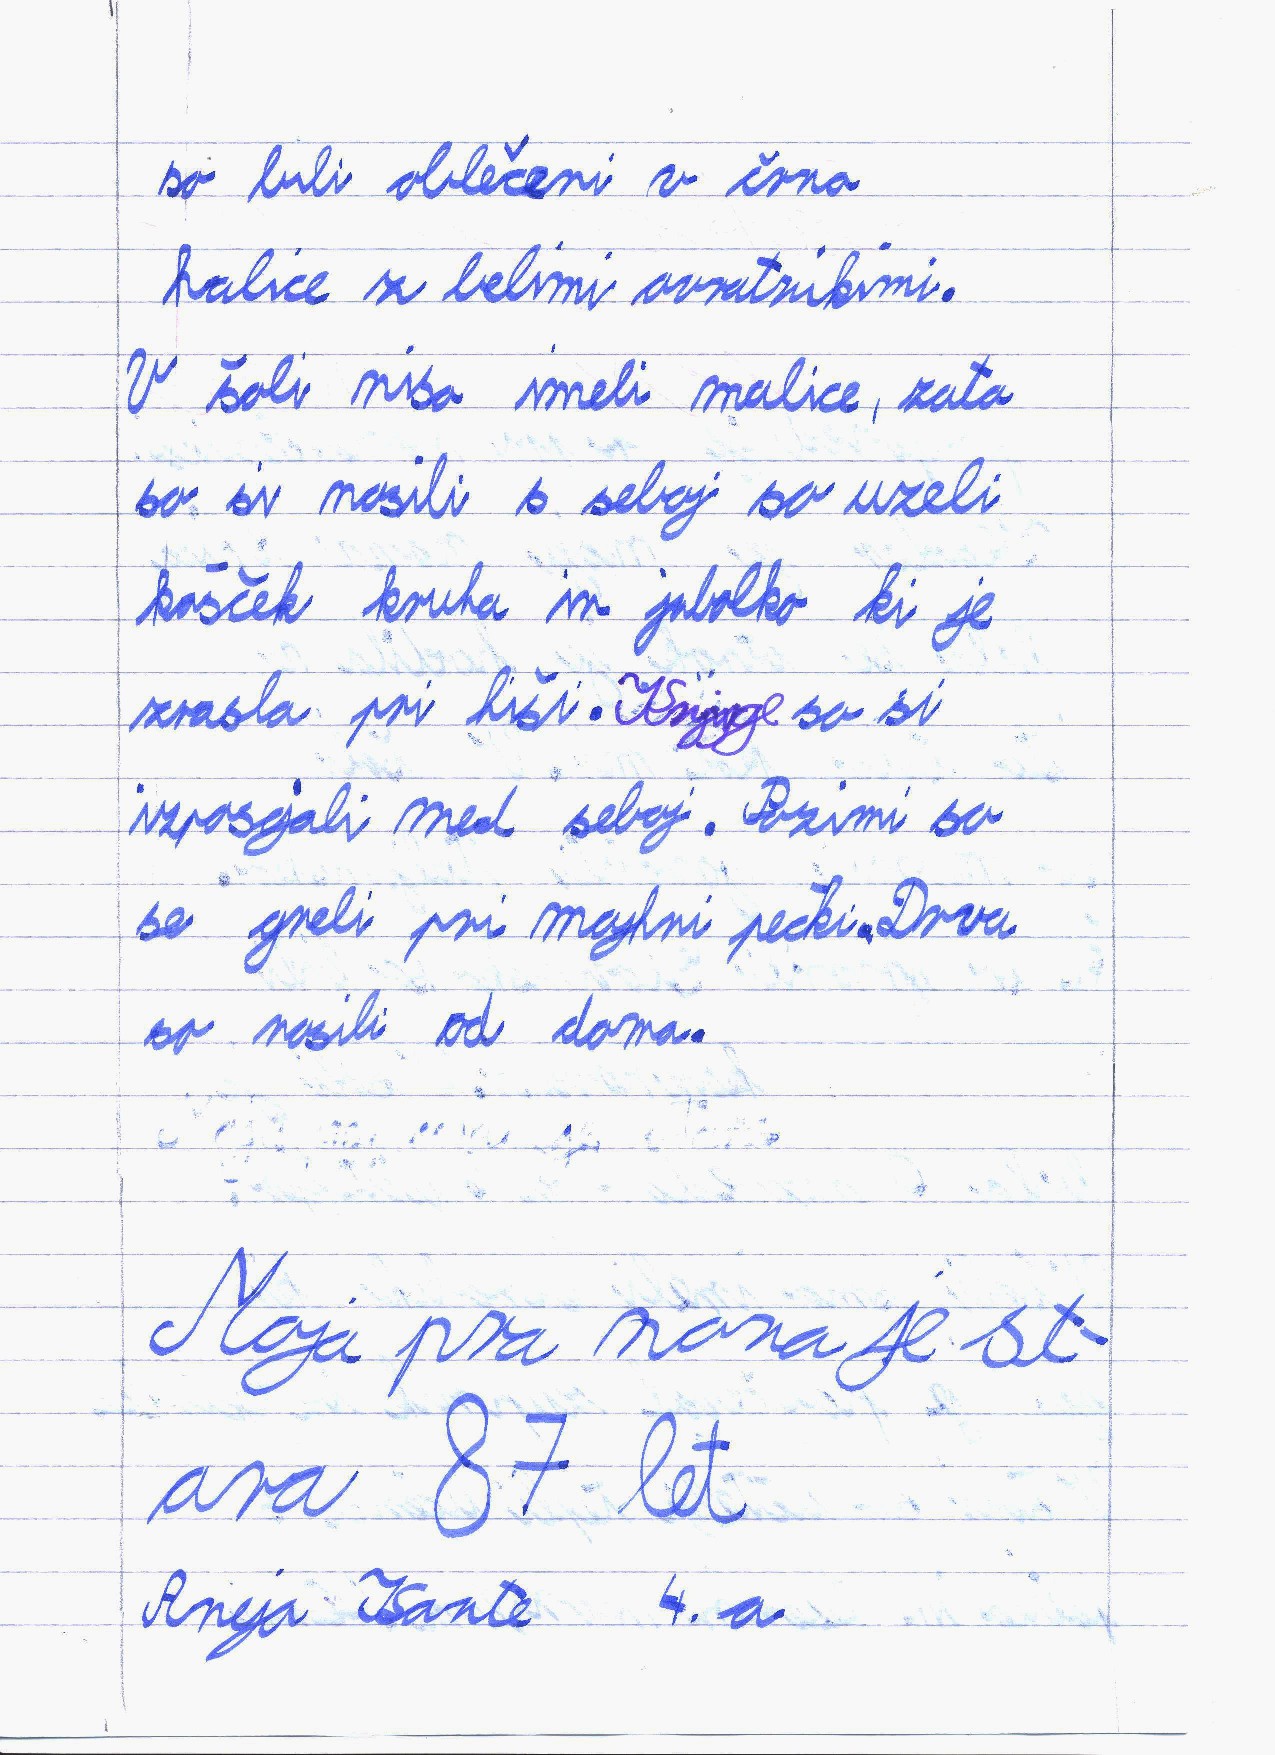 so bili oblečeni v črna
halice z belimi ovratnikimi.
V šoli niso imeli malice, zato
so si nosili s seboj so uzeli
košček kruha in jabolko ki je
zrasla pri hiši. Knjige so si
izposojali med seboj. Pozimi so
se greli pri majhni pečki. Drva
so nosili od doma.
Moja pra nona je st-
ara 87 let
Aneja Kante 4. a